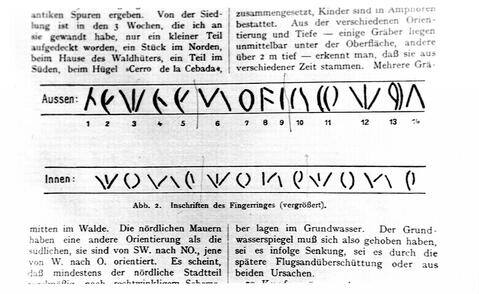 antiken Spuren ergeben. Von der Sied-
lung ist in den 3 Wochen, die ich an
sie gewandt habe, nur ein kleiner Teil
aufgedeckt worden, ein Stück im Norden,
beim Hause des Waldhüters, ein Teil im
Süden, beim Hügel »Cerro de la Cebada«,
zusammengesetzt, Kinder sind in Amphoren
bestattet. Aus der verschiedenen Orien-
tierung und Tiefe — einige Gräber liegen
unmittelbar unter der Oberfläche, andere
über 2 m tief — erkennt man, daß sie aus
verschiedener Zeit stammen. Mehrere Grä-
Aussen:
1 2 3 4 5 6 7 8 9 10 11 12 13 14
Innen:
Abb. 2. Inschriften des Fingerringes (vergrößert).
mitten im Walde. Die nördlichen Mauern
haben eine andere Orientierung als die
südlichen, sie sind von SW. nach NO., jene
von W. nach O. orientiert. Es scheint,
daß mindestens der nördliche Stadtteil
ber lagen im Grundwasser. Der Grund-
wasserspiegel muß sich also gehoben haben,
sei es infolge Senkung, sei es durch die
spätere Flugsandüberschüttung oder aus
beiden Ursachen.